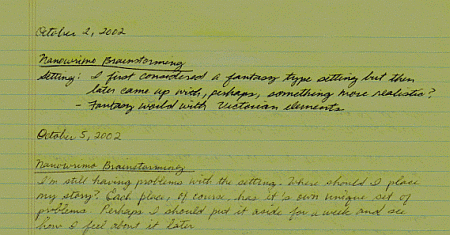 October 2, 2002
Nanowrimo Brainstorming
Setting: I first considered a fantasy type setting but then
later came up with, perhaps, something more realistic?
- Fantasy world with Victorian elements.
October 5, 2002
Nanowrimo Brainstorming
I'm still having problems with the setting. Where should I place
my story? Each place, of course, has it's own unique set of
problems. Perhaps I should put it aside for a week and see
how I feel about it later.